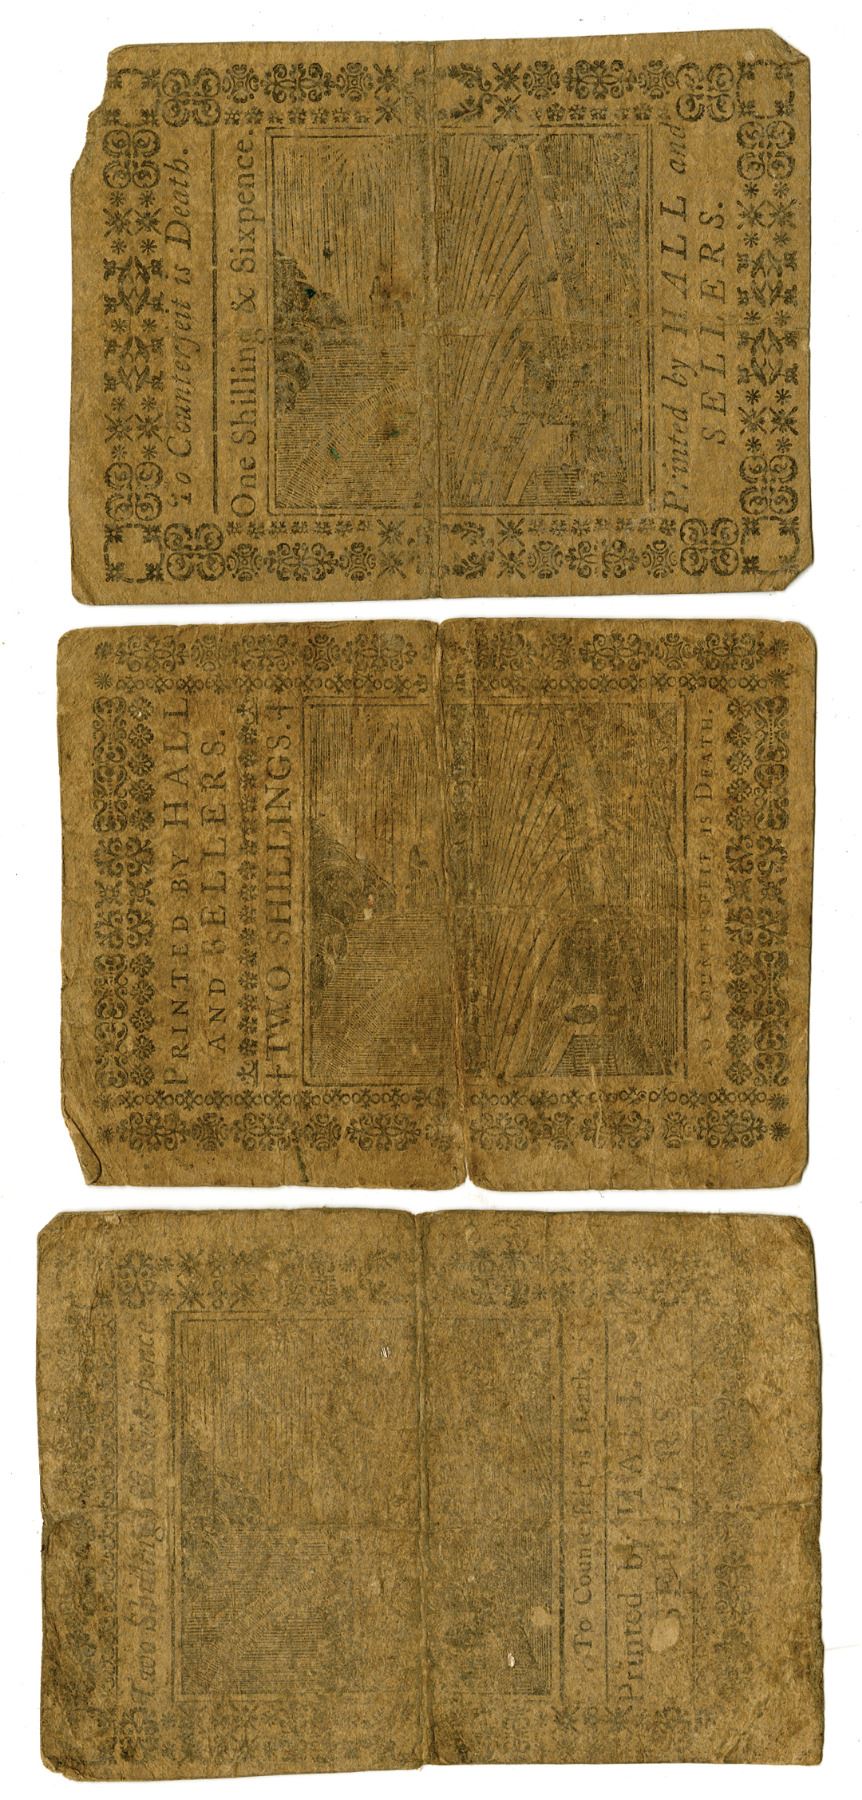 To Counterfeit is Death.
One Shilling & Sixpence.
Printed by HALL and
SELLERS.
PRINTED BY HALL
AND SELLERS.
†TWO SHILLINGS.†
O COUNTERFEIT IS DEATH.
Two Shillings & Six-pence
To Counterfeit is Death.
Printed by HALL
SELLERS